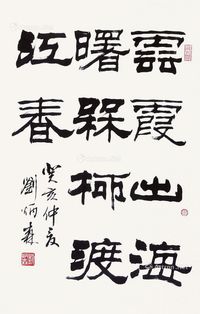 雲霞出海
曙槑柳渡
江春
癸亥仲夏
劉炳森